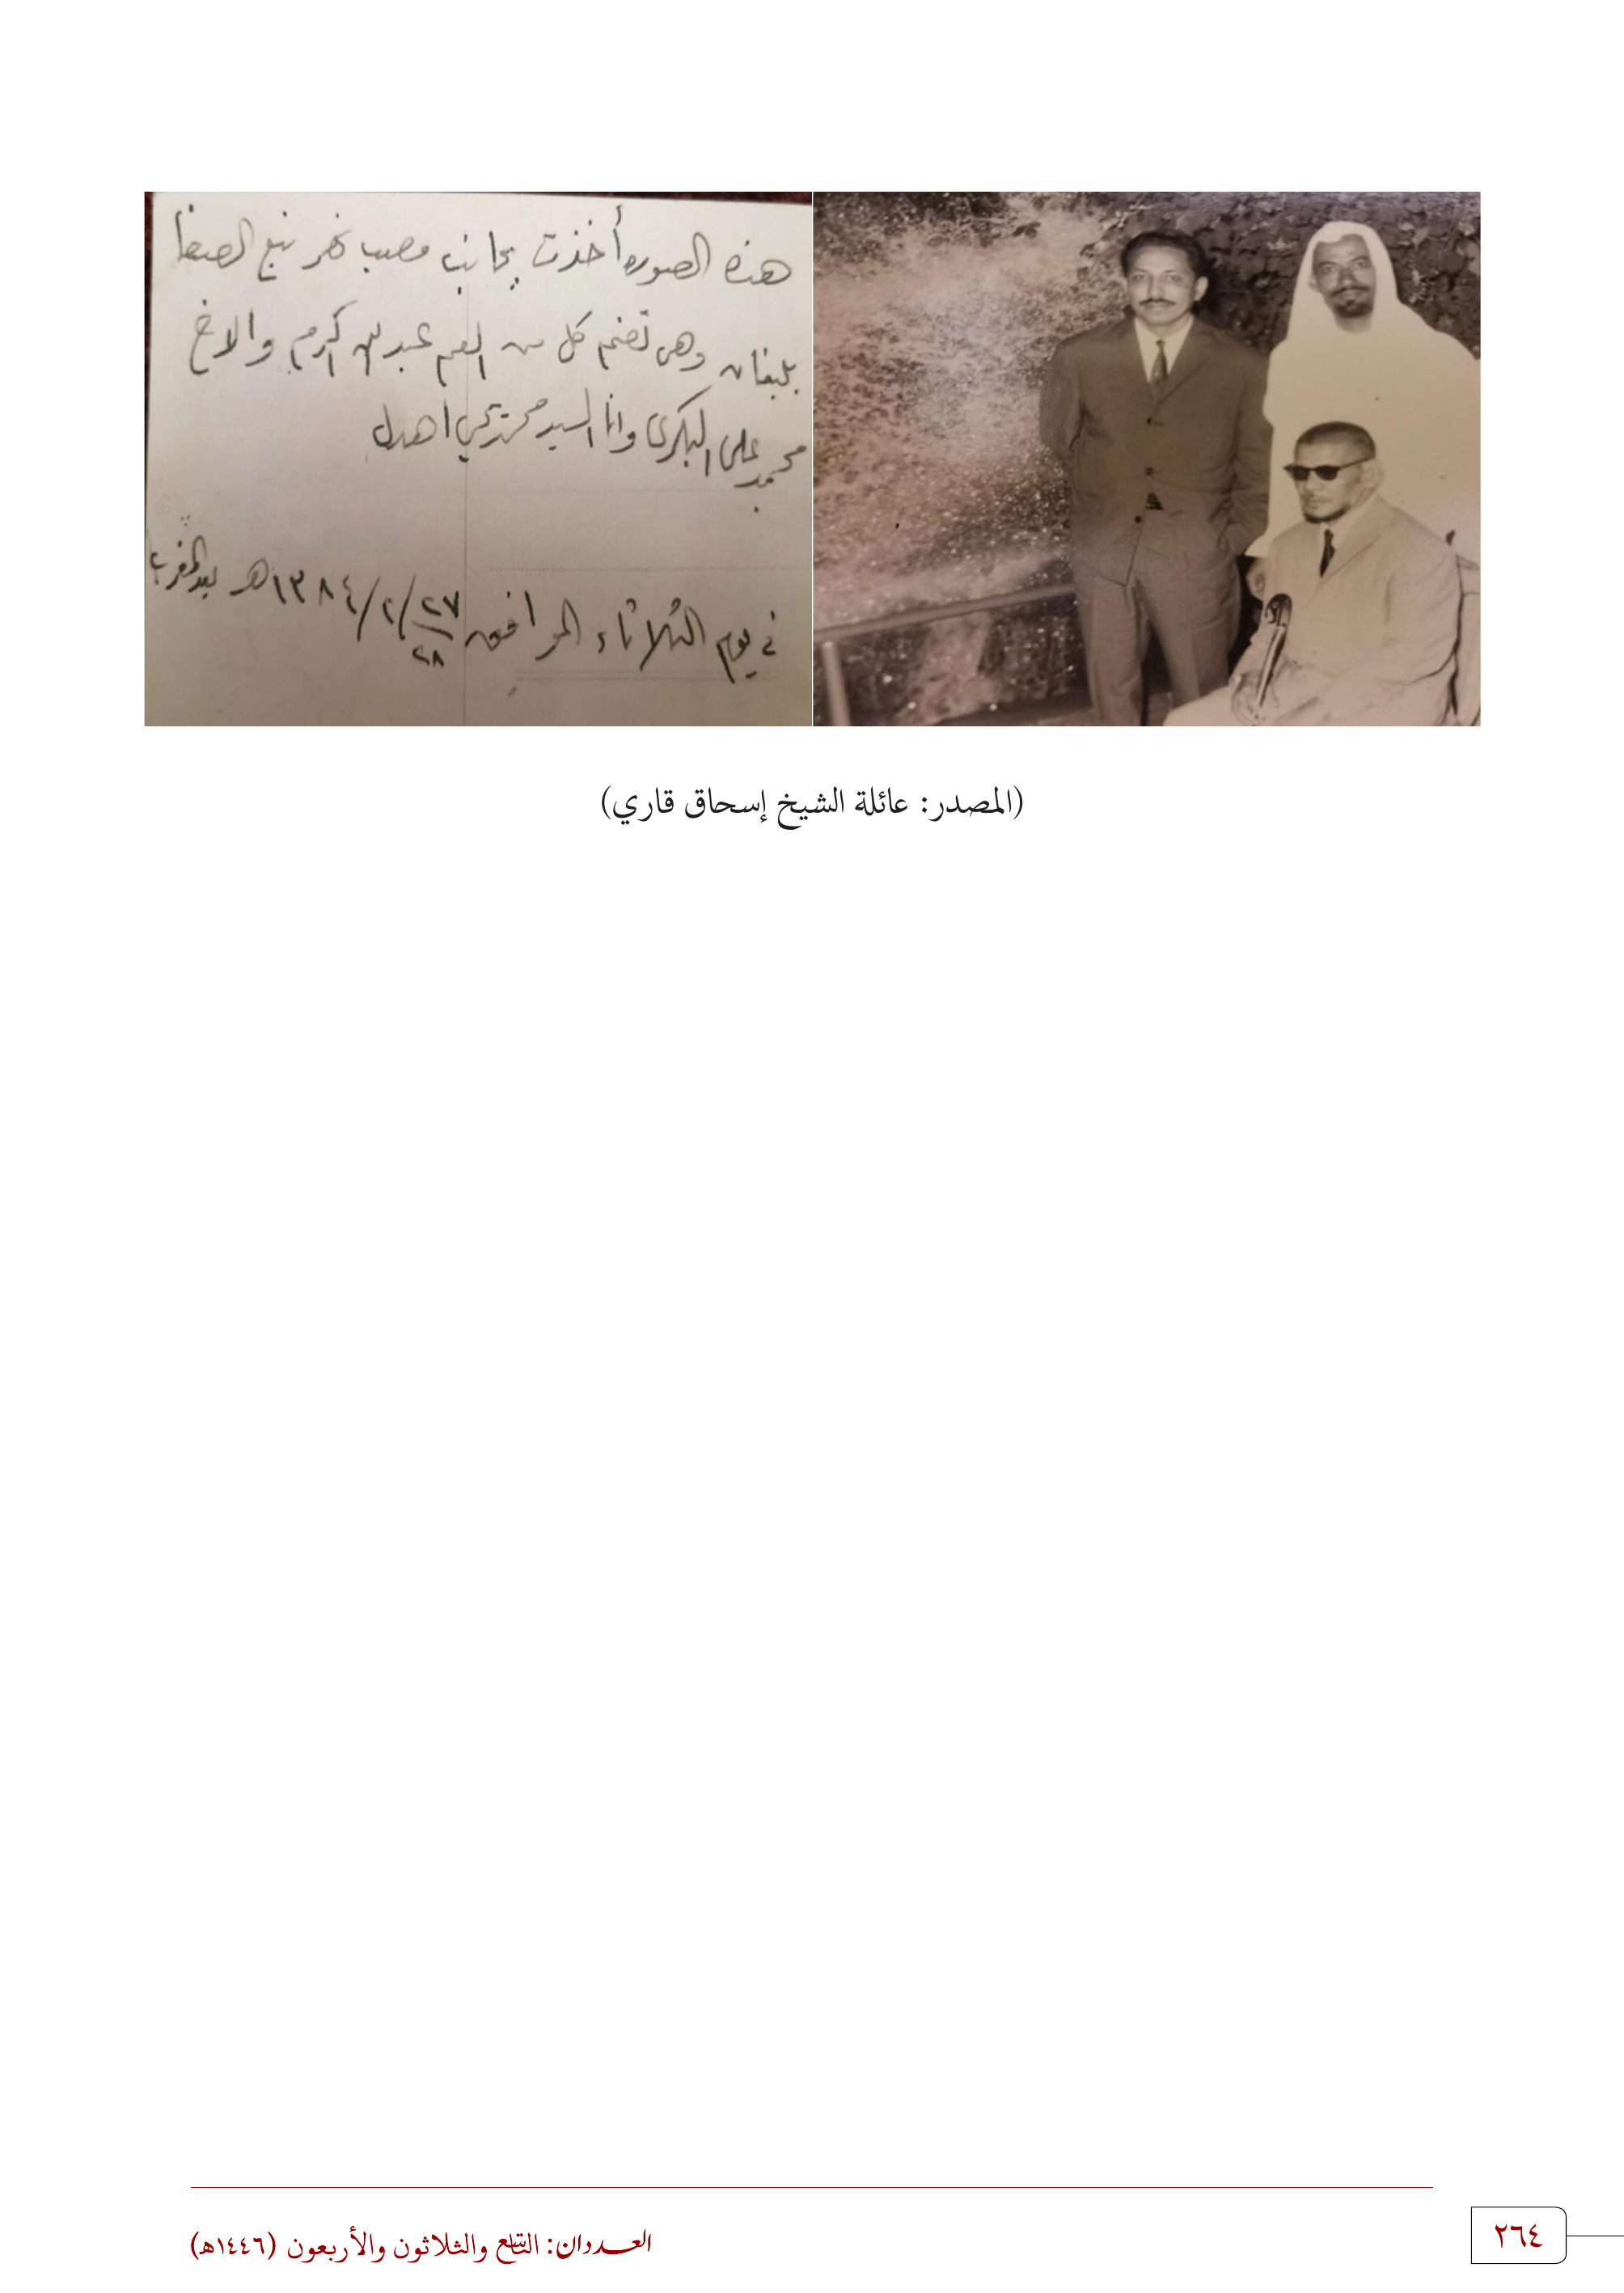 هذه الصوره أخذت بجانب مصب نهر نبع الصفا
بلبنان وهى تضم كل من العم عبد الله كرم والاخ
محمد على البكرى وانا السيد محمد يحيى اهدل
فى يوم الثلاثاء الموافق ٢٧/٢٨ /٢/ ١٣٨٤هـ بعد المغرب
(المصدر: عائلة الشيخ إسحاق قاري)
العددان: التاسع والثلاثون والأربعون (١٤٤٦هـ)
٢٦٤